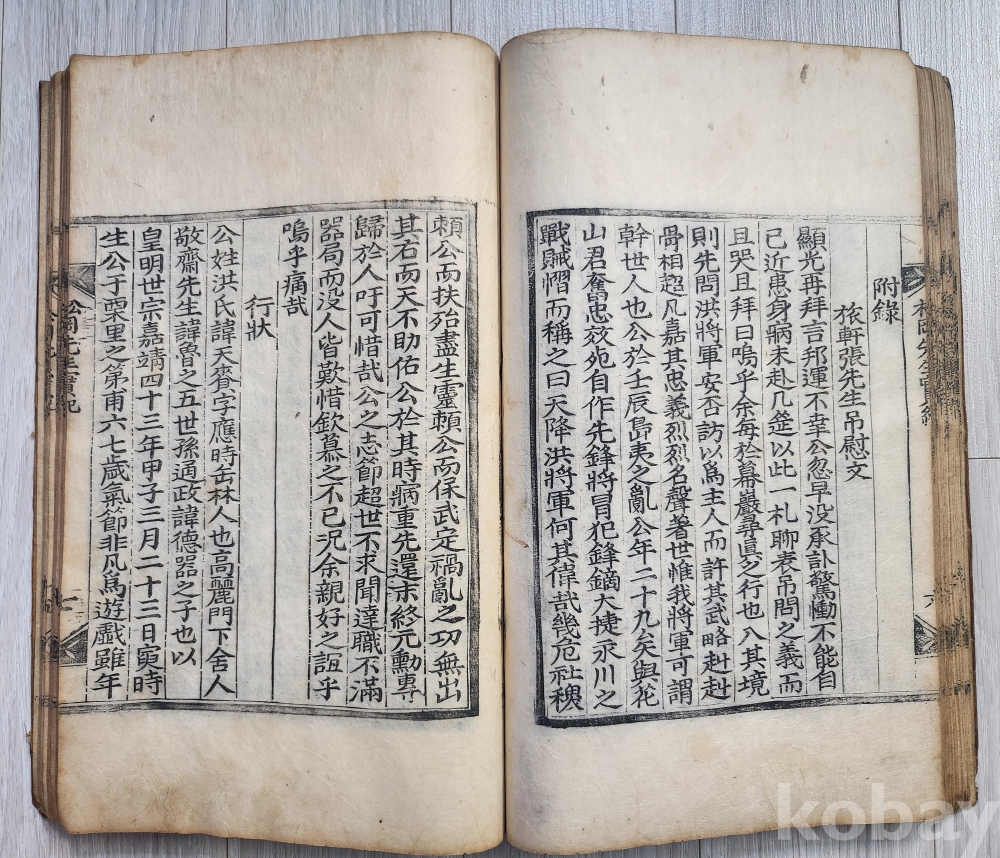 附錄
旅軒張先生吊慰文
顯光再拜言邦運不幸公忽早没承訃驚慟不能自
已近患身病未赴几筵以此一札聊表吊問之義而
且哭且拜曰嗚乎余每於幕巖尋眞之行也入其境
則先問洪將軍安否訪以爲主人而許其武略赳赳
骨相超凡嘉其忠義烈烈名聲著世惟我將軍可謂
幹世人也公於壬辰島夷之亂公年二十九矣與花
山君奮忠效死自作先鋒將冒犯鋒鏑大捷永川之
戰賊慴而稱之曰天降洪將軍何其偉哉幾危社稷
賴公而扶殆盡生靈賴公而保武定禍亂之功無出
其右而天不助佑公於其時病重先還末終元勳專
歸於人吁可惜哉公之志節超世不求聞達職不滿
器局而没人皆歎惜欽慕之不已況余親好之誼乎
嗚乎痛哉
行狀
公姓洪氏諱天賚字應時缶林人也高麗門下舍人
敬齋先生諱魯之五世孫通政諱德器之子也以
皇明世宗嘉靖四十三年甲子三月二十三日寅時
生公于栗里之第甫六七歲氣節非凡爲遊戲雖年
松岡先生實紀
kobay